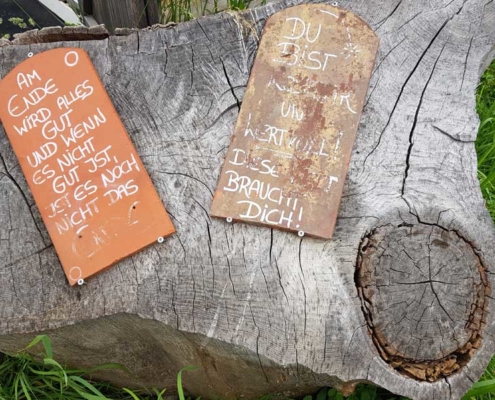 AM
ENDE
WIRD ALLES
GUT
UND WENN
ES NICHT
GUT IST,
IST ES NOCH
NICHT DAS
DU
BIST
UN
WERTVOLL!
DIESE
BRAUCHT
DICH!